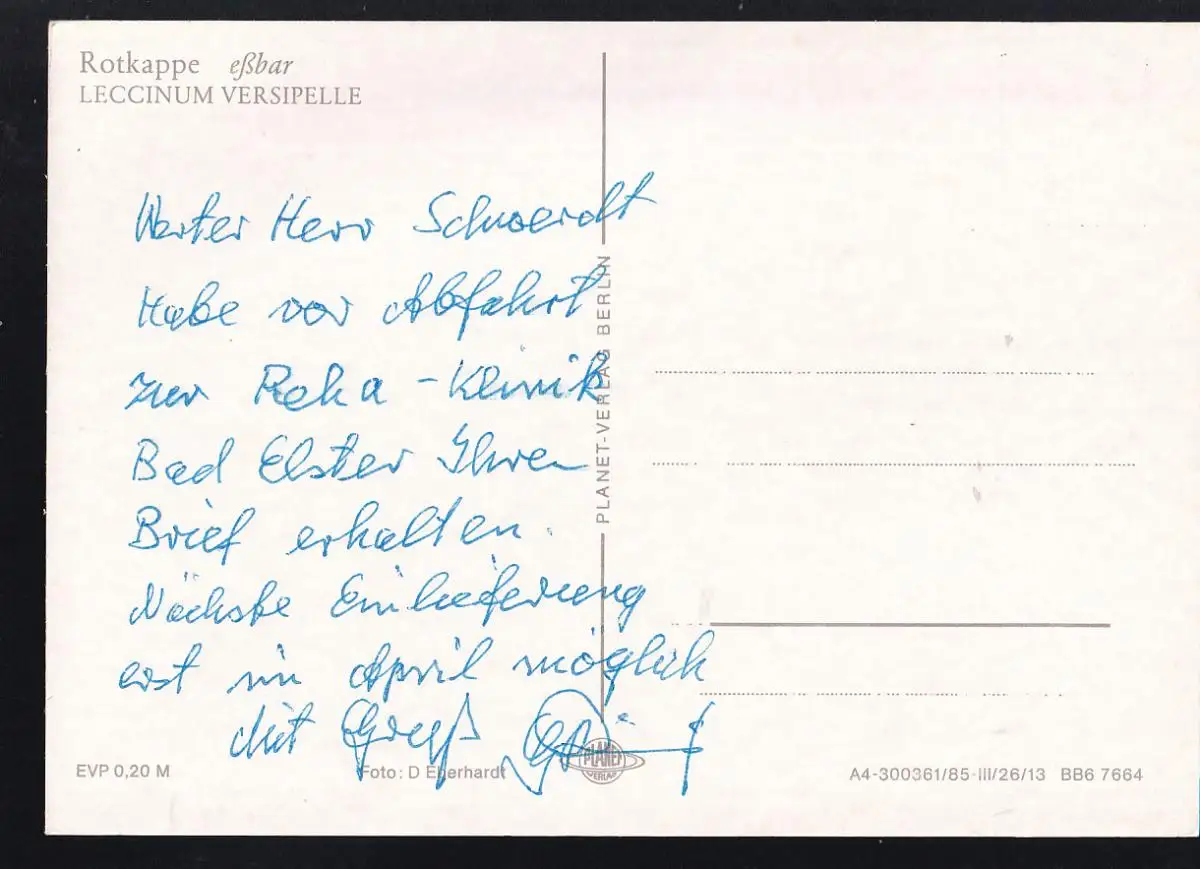 Rotkappe eßbar
LECCINUM VERSIPELLE
Werter Herr Schwerdt
Habe vor Abfahrt
zur Reha-Klinik
Bad Elster Ihren
Brief erhalten.
Nächste Einlieferung
erst im April möglich
Mit Gruß
PLANET-VERLAG BERLIN
PLANET
VERLAG
EVP 0,20 M
Foto: D Eberhardt
A4-300361/85-III/26/13 BB6 7664